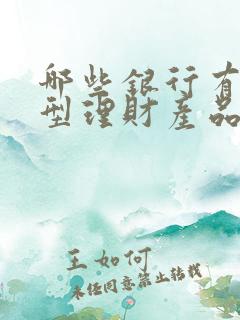 哪些銀行有
型理財產品
王如何
未经同意禁止转载